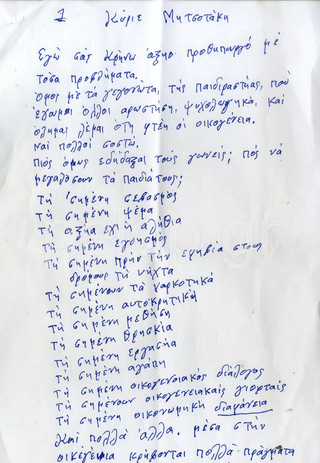 1 Κύριε Μητσοτάκη
Εγώ σας κρήνω άξηο προθηπουργό με
τοσα προβλήματα.
Όμος με τα γεγονότα, της παιδιραστήας, πού
έγωμαι όλλοι αρωστήση, ψυχολωγηκά, και
όληmαι λέμαι ότη φτέη οι οικογένεια.
Ναι πολλοί σοστώ.
Πιός όμως εδήδαξαι τούς γωνείς; πός νά
μεγαλόσουν τά παιδιά τους;
Τή σημένη σεβασμός
Τή σημένη ψέμα
Τή αξήα εχή η αλήθια
Τή σημένη εγοησμος
Τή σημένη πρήν την εφηβία στους
δρόμους τή νήχτα
Τή σημένουν τά ναρκοτηκά
Τή σημένη αυτοκρητηκή
Τή σημένη μεθήση
Τή σημένη θρησκία
Τή σημένη εργασηα
Τή σημένη αγάπη
Τή σημένη οικογενοιακός διάλογος
Τή σημένουν οικογενειακαίς γιορταίς
Τή σημένη οικονωμηκη διαφάνεια
Και πολλά άλλα. μέσα στήν
οικέγεια κρήβονται πολλά πράγματα